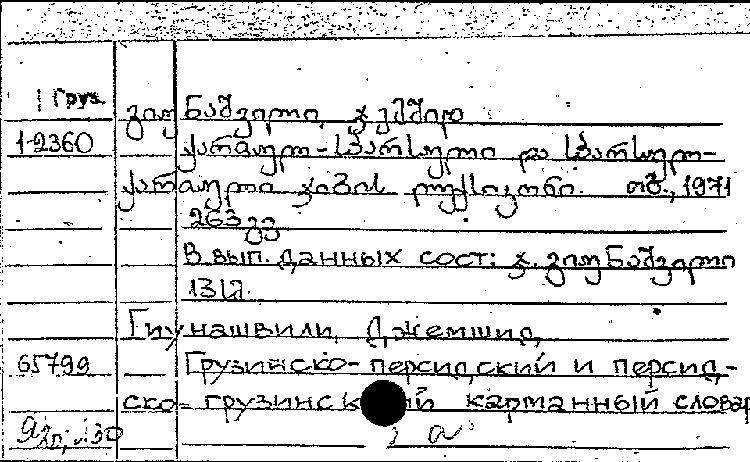 Груз.
გიუნაშვილი, ჯემშიდ
1-2360
ქართულ-სპარსული და სპარსულ-
ქართული ჯიბის ლექსიკონი. თბ., 1971
263 გვ
В вып. данных сост: ჯ. გიუნაშვილი
131д.
Гиунашвили, Джемшид,
65799
Грузинско-персидский и персид-
ско-грузинский карманный словар